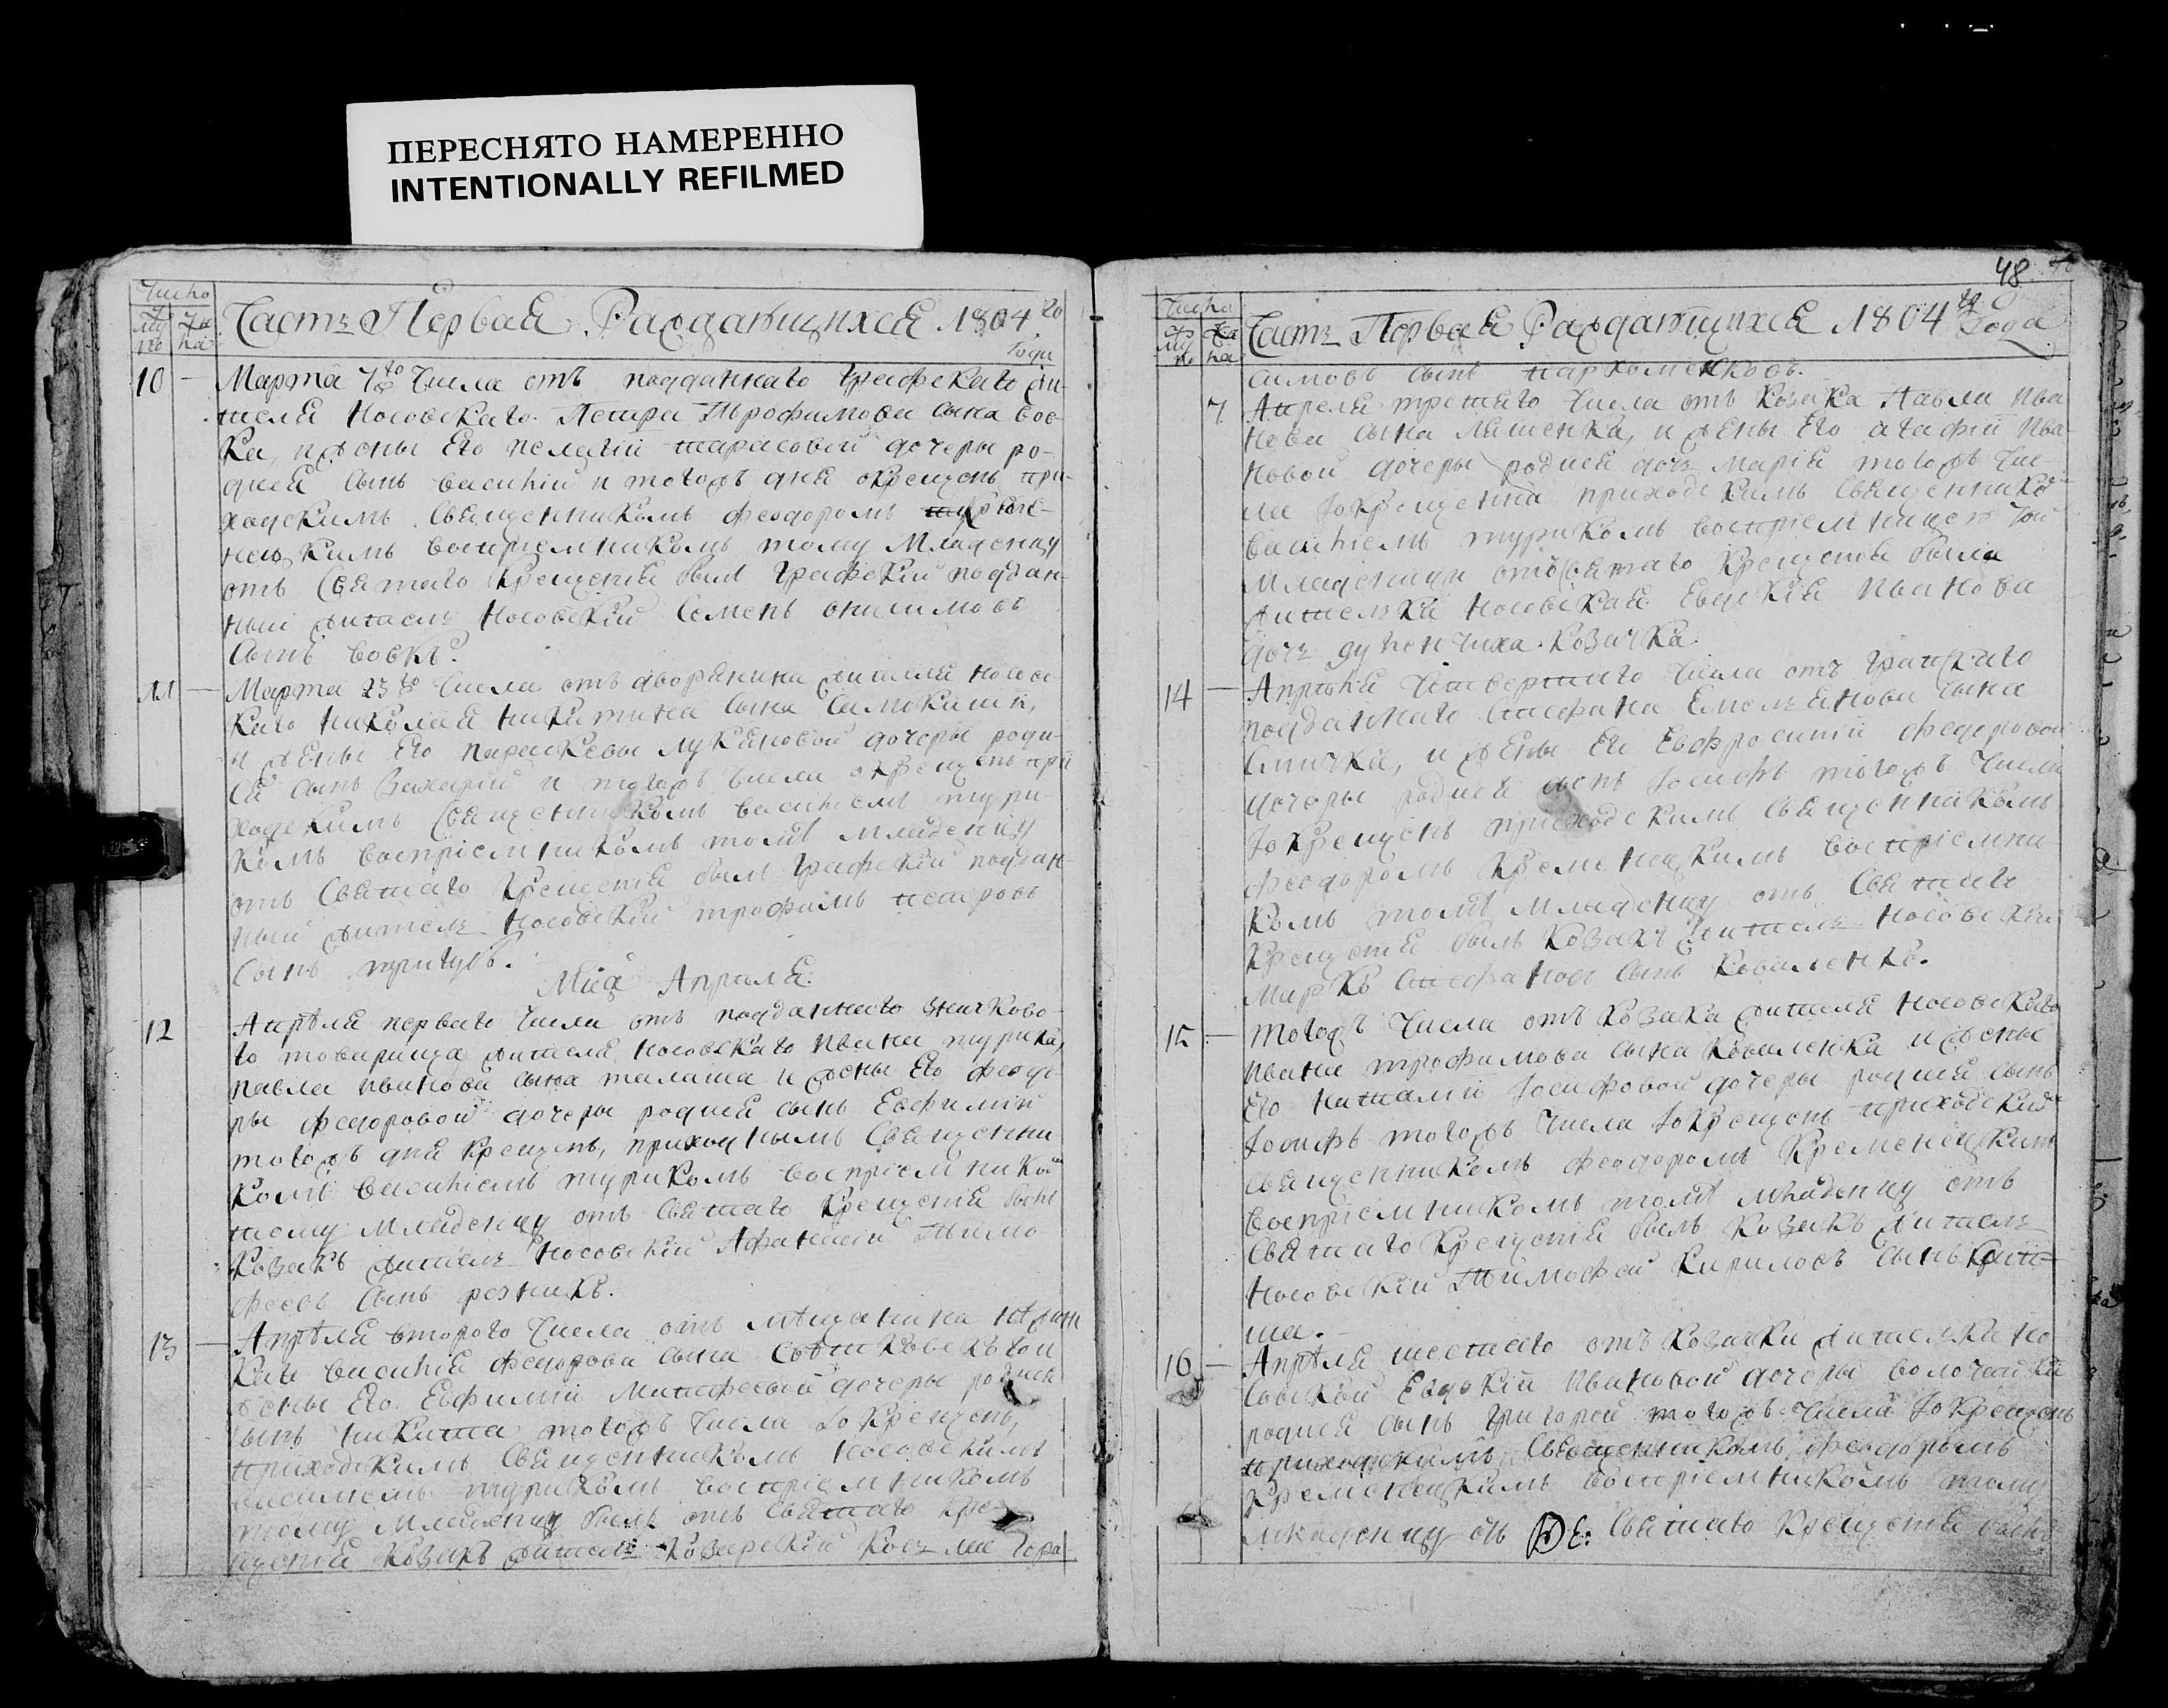 ПЕРЕСНЯТО НАМЕРЕННО
INTENTIONALLY REFILMED
Число
му жс
по на
Часть Первая Раждающихся 1804 го
Года
10 — Марта 7 го Числа отъ подданнаго Графскаго жи-
теля Носовскаго Петра Трофимова сына Вов-
ка, и жены Его Пелагіи Тарасовой дочеры ро-
дися сынъ Василій и тогожъ дня окрещенъ при-
ходскимъ Священникомъ Феодоромъ
воспріемникомъ тому Младенцу
отъ Святаго Крещенія былъ Графскій поддан-
ный житель Носовскій Семенъ Онисимовъ
Сынъ Вовкъ.
11 — Марта 23 го Числа отъ дворянина жителя Носов-
каго Николая Никитина сына Самокиши,
и жены Его Параскевы Лукяновой дочеры роди-
ся сынъ Захарій и тогожъ Числа окрещенъ при
ходскимъ Священникомъ Василіемъ Тури
комъ воспріемникомъ томꙋ младенцꙋ
отъ Святаго Крещенія былъ Графскій поддан-
ный житель Носовскій Трофимъ Петровъ
Сынъ
Мца Апреля.
12 Апрѣля перваго Числа отъ подданнаго Значково-
го товарища жителя Носовскаго Ивана Турика,
Павла Иванова сына Талаша и жены Его Феодо
ры Федоровой дочеры родися сынъ Евфимій
тогожъ дня крещенъ, приходнымъ Священни
комъ Василіемъ Турикомъ воспріемникомъ
тому Младенцу отъ Святаго Крещенія былъ
Козакъ житель Носовскій Афанасій Тимо
феевъ Сынъ Резникъ.
13 — Апрѣля втораго Числа отъ мѣщанина
Василія Федорова сына
жены Его Евфиміи Матфеевой дочеры родися
сынъ Никита тогожъ Числа Ѡкрещенъ,
приходскимъ Священникомъ Носовскимъ
Василіемъ Турикомъ воспріемникомъ
тому Младенцу былъ отъ Святаго Кре-
щенія Козакъ житель Козарскій
48
Число
му же
по на
Часть Первая Раждающихся 1804 го Года
симовъ сынъ Пархоменковъ.
7 Апреля третяго Числа отъ Козака Павла Ива
нова сына Ляшенка, и жены Его Агафіи Ива-
новой дочеры родися дочь Марія тогожъ Чис-
ла Ѡкрещенна приходскимъ Священнико
Василіемъ Турикомъ воспріемницею той
Младеницы отъ Святаго Крещенія была
жителька Носовская Евдокія Иванова
дочь Козачка.
14 — Апрѣля Четвертаго Числа отъ
подданнаго Стефана Емельянова сына
и жены Его Евфросиніи Федоровой
дочеры родися сынъ Іосифъ тогожъ Числа
Ѡкрещенъ приходскимъ Священникомъ
Феодоромъ Кременецкимъ воспріемни
комъ томꙋ Младенцу отъ Святаго
Крещенія былъ Козакъ житель Носовскій
Марко Стефановъ сынъ Коваленко.
15 — Тогожъ Числа отъ Козака жителя Носовскаго
Ивана Трофимова сына Коваленка и жены
Его Наталіи Іосифовой дочеры родися сынъ
Іосифъ тогожъ Числа Ѡкрещенъ приходскимъ
Священникомъ Феодоромъ Кременецкимъ
воспріемникомъ томꙋ Младенцу отъ
Святаго Крещенія былъ Козакъ житель
Носовскій Тимофей Кириловъ сынъ
ша.
16 — Апрѣля шестаго отъ Козачки жительки Но-
совской Евдокіи Ивановой дочеры
родися сынъ Григорей тогожъ Числа Ѡкрещенъ
приходскимъ Священникомъ Феодоромъ
Кременецкимъ воспріемникомъ тому
Младенцу отъ Святаго Крещенія былъ